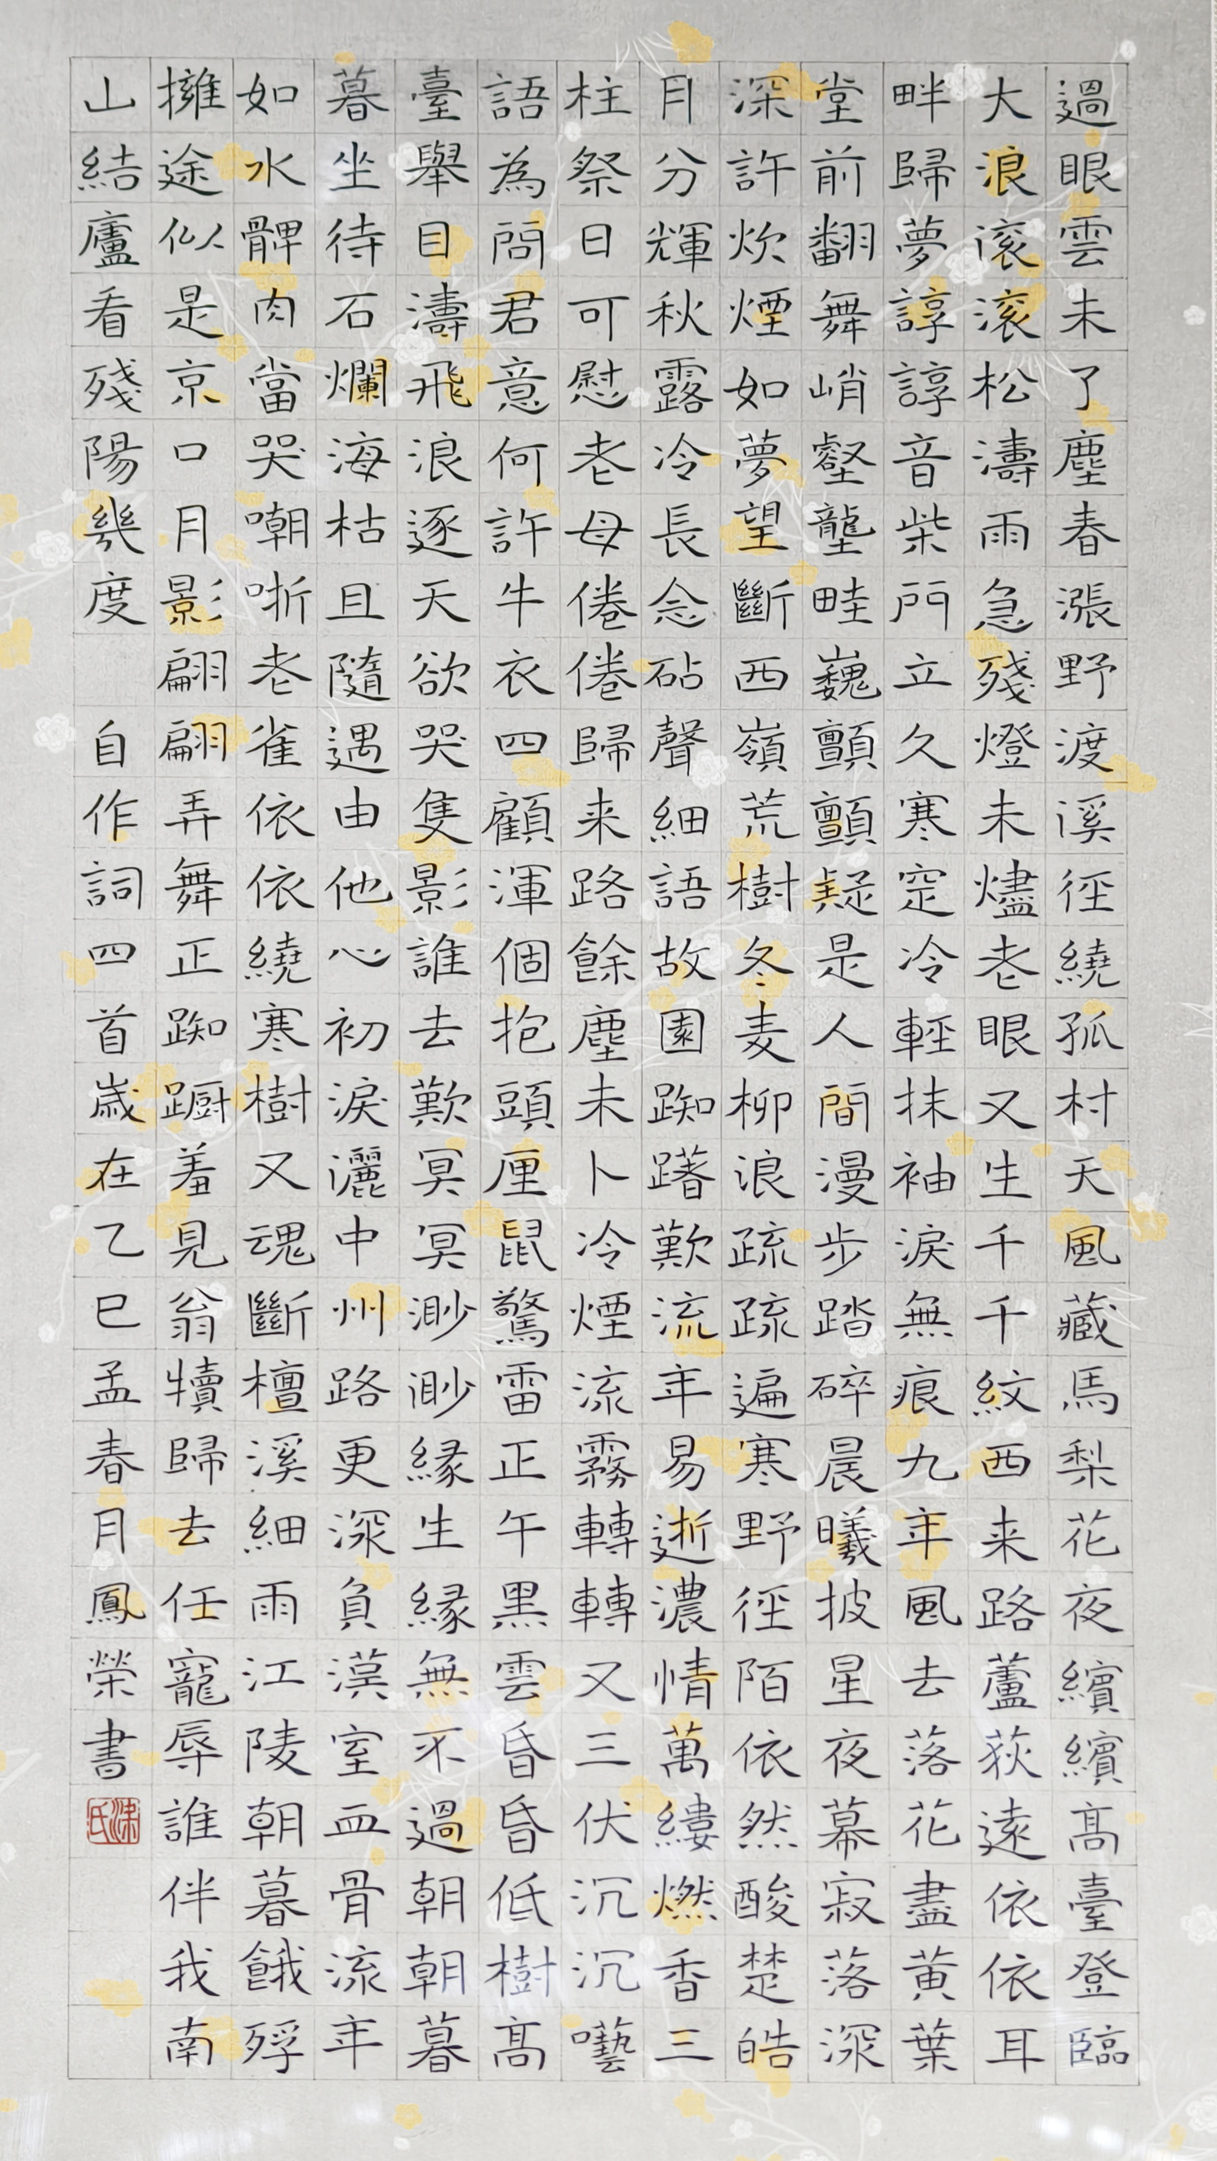 過眼雲未了塵春漲野渡溪徑繞孤村天風藏馬梨花夜繽繽高臺登臨
大浪滚滚松濤雨急殘燈未燼老眼又生千千紋西来路蘆荻遠依依耳
畔歸夢諄諄音柴門立久寒窣冷輕抹袖淚無痕九年風去落花盡黃葉
堂前翻舞峭壑壟畦巍顫顫疑是人間漫步踏碎晨曦披星夜幕寂落深
深許炊煙如夢望斷西嶺荒樹冬麦柳浪疏疏遍寒野徑陌依然酸楚皓
月分輝秋露冷長念砧聲細語故園踟躇歎流年易逝濃情萬縷燃香三
柱祭日可慰老母倦倦歸来路餘塵未卜冷煙流霧轉轉又三伏沉沉囈
語為問君意何許牛衣四顧渾個抱頭厘鼠驚雷正午黑雲昏昏低樹高
臺舉目濤飛浪逐天欲哭隻影誰去歎冥冥渺渺緣生緣無不過朝朝暮
暮坐待石爛海枯且隨遇由他心初淚灑中州路更深負漢室血骨流年
如水髀肉當哭嘲哳老雀依依繞寒樹又魂斷檀溪細雨江陵朝暮餓殍
擁途似是京口月影翩翩弄舞正踟蹰羞見翁犢歸去任寵辱誰伴我南
山結廬看殘陽幾度 自作詞四首歲在乙巳孟春月鳳榮書